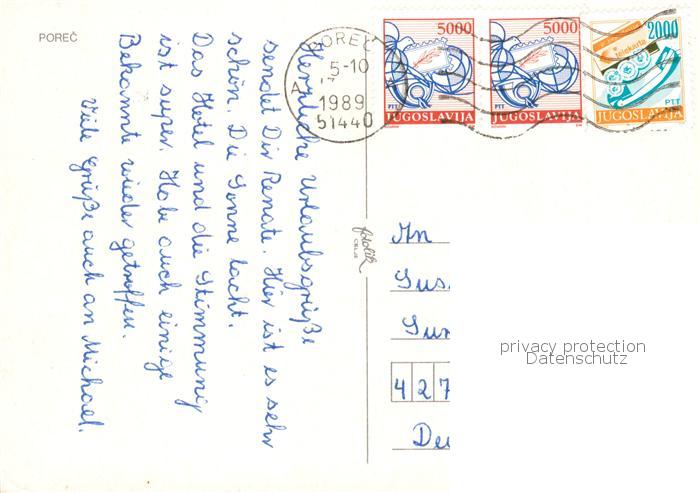 POREČ
Herzliche Urlaubsgrüße
sendet Dir Renate. Hier ist es sehr
schön. Die Sonne lacht.
Das Hotel und die Stimmung
ist super. Habe auch einige
Bekannte wieder getroffen.
Viele Grüße auch an Michael.
POREČ
5-10
1989
A
51440
5000
PTT
JUGOSLAVIJA
5000
PTT
JUGOSLAVIJA
2000
telekarta
PTT
JUGOSLAVIJA
fotolik
CELJE
An
Sus
427
privacy protection
Datenschutz